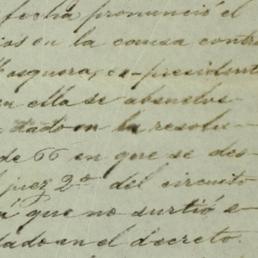 fecha pronunció el
ios en la causa contra
Mosquera, ex-president
en ella se absuelve
dado en la resolu-
de 66 en que se des-
l juez 2º del circuito
ú que no surtió e-
dado en el decreto.